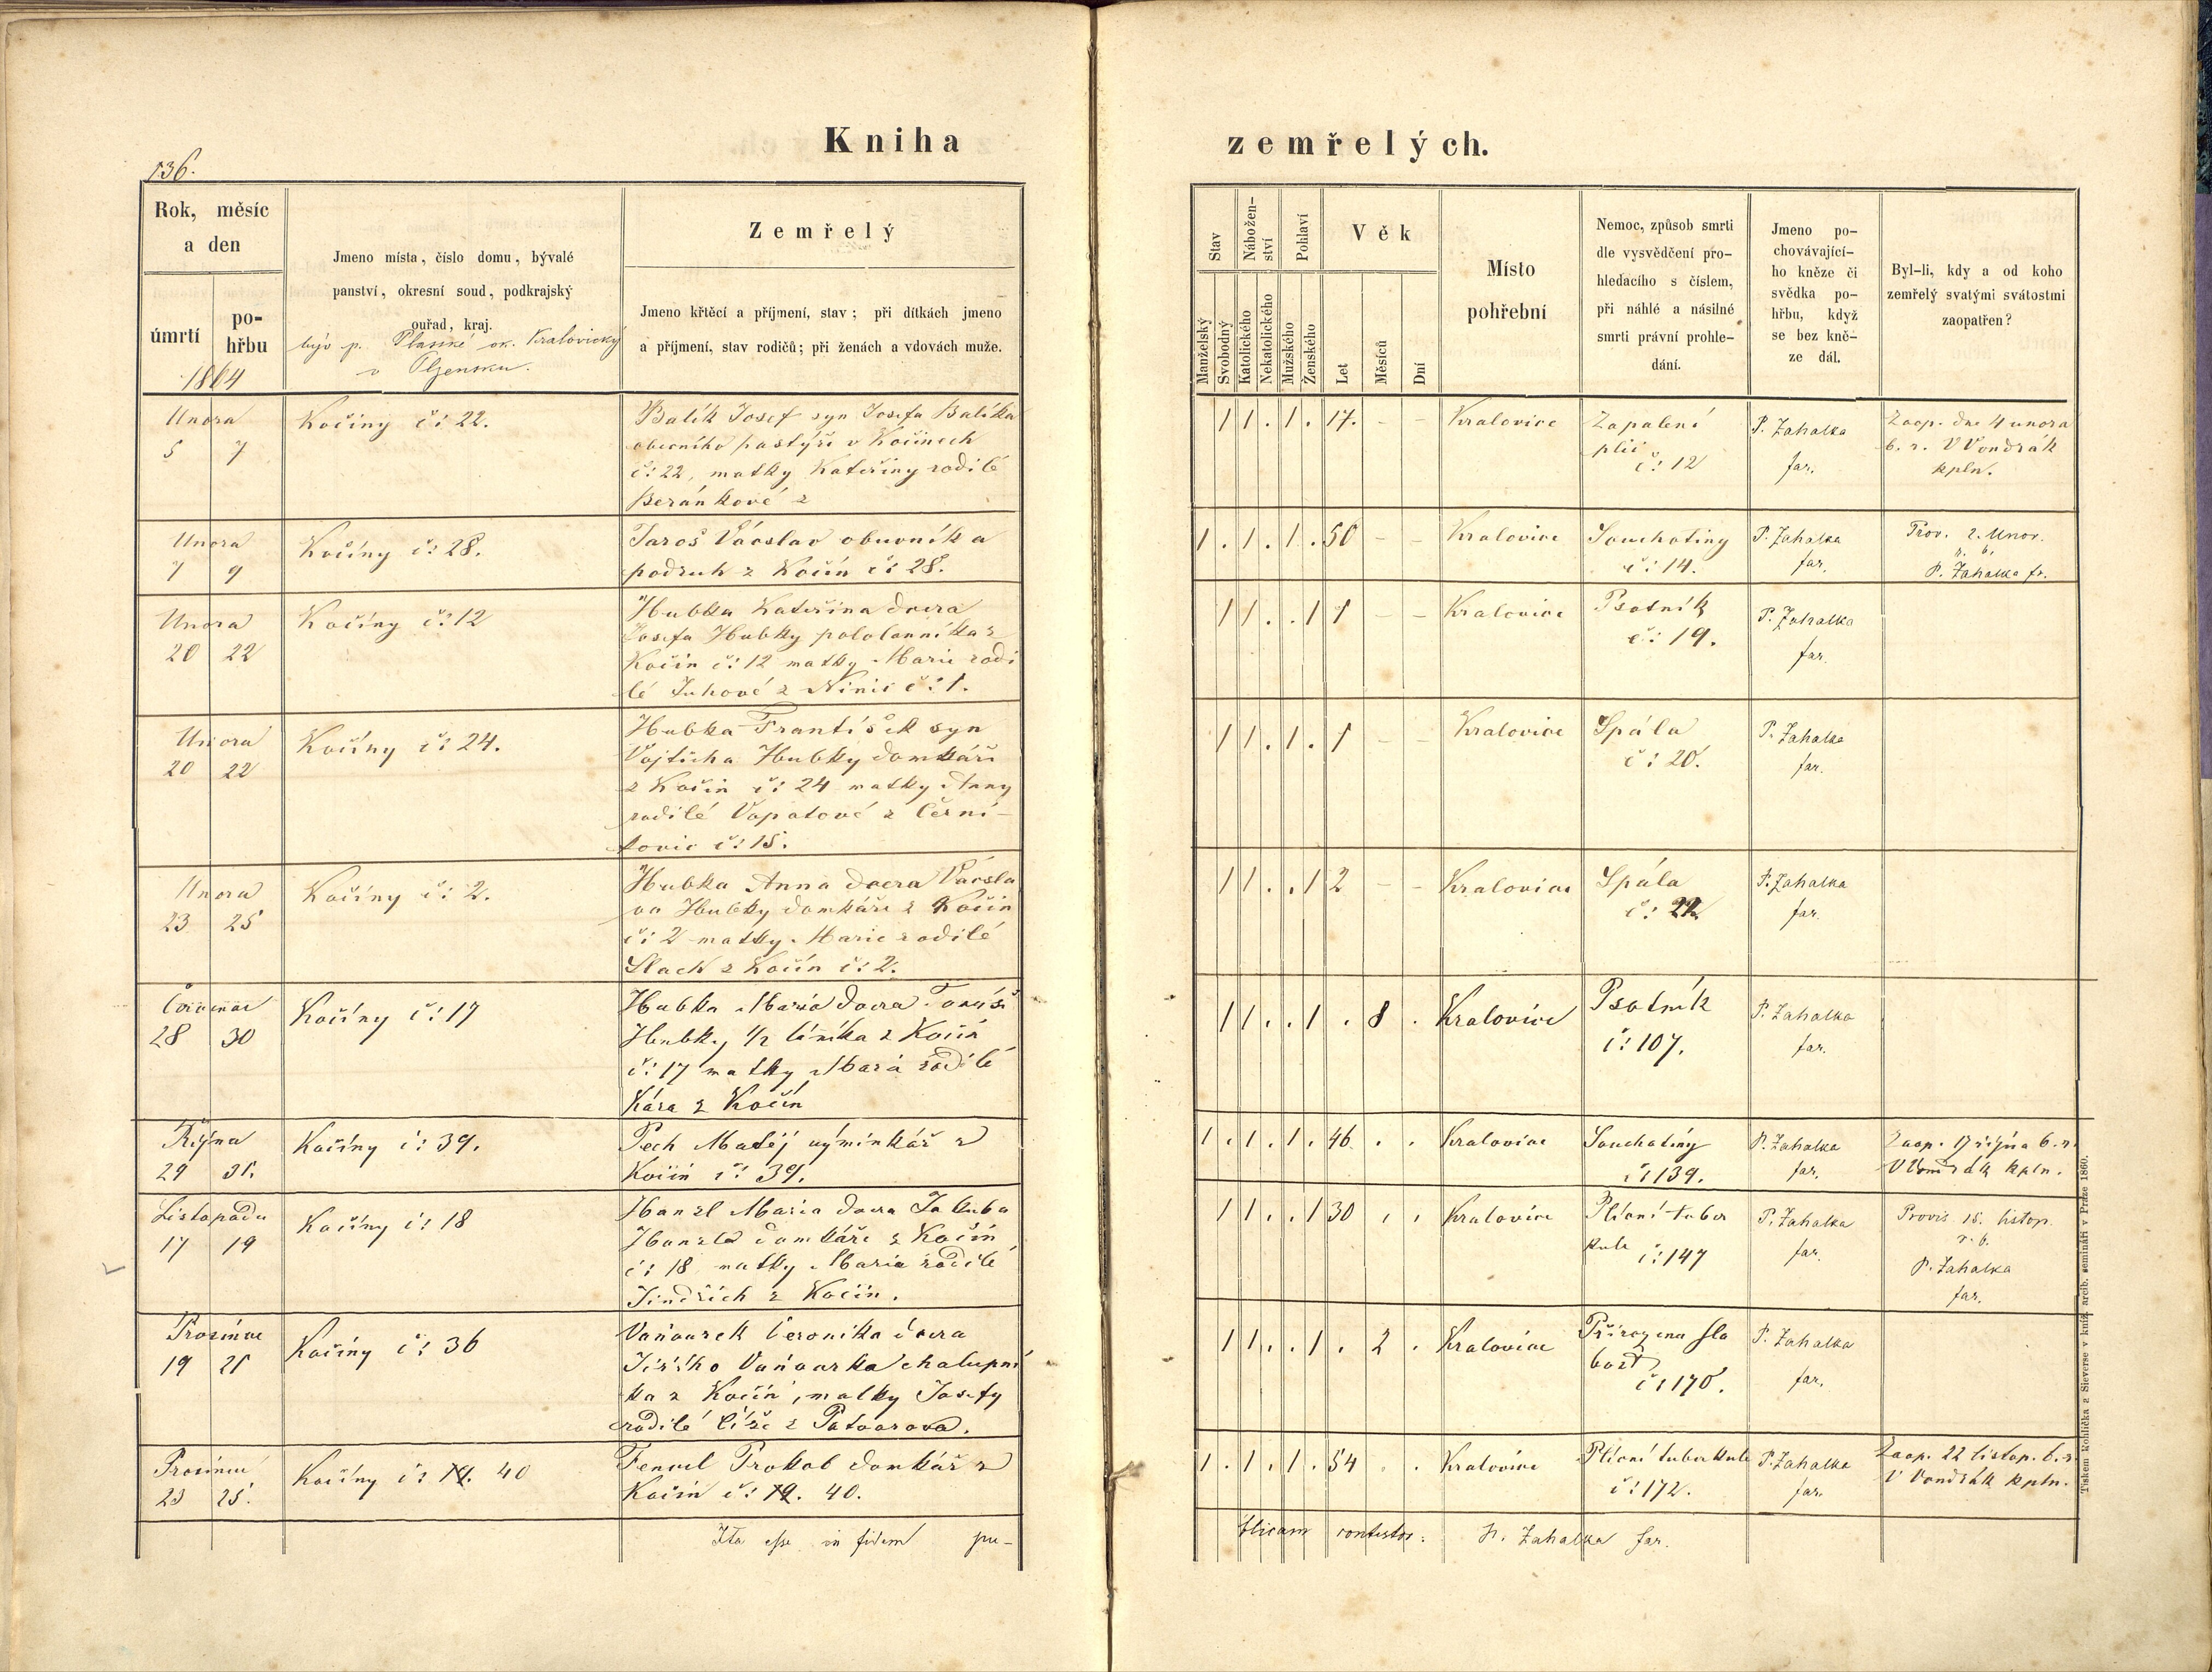 Kniha
zemřelých.
136.
Rok, měsíc
a den
úmrtí
po-
hřbu
1864
Jmeno místa, číslo domu, bývalé
panství, okresní soud, podkrajský
ouřad, kraj.
býv p. Plasské ok. Kralovický
v Plzensku.
Zemřelý
Jmeno křtěcí a příjmení, stav; při dítkách jmeno
a příjmení, stav rodičů; při ženách a vdovách muže.
Stav
Nábožen-
ství
Pohlaví
Věk
Manželský
Svobodný
Katolického
Nekatolického
Mužského
Ženského
Let
Měsíců
Dní
Místo
pohřební
Nemoc, způsob smrti
dle vysvědčení pro-
hledacího s číslem,
při náhlé a násilné
smrti právní prohle-
dání.
Jmeno po-
chovávající-
ho kněze či
svědka po-
hřbu, když
se bez kně-
ze dál.
Byl-li, kdy a od koho
zemřelý svatými svátostmi
zaopatřen?
Unora
5 7
Kočiny č: 22.
Balík Josef syn Josefa Balíka
obecního pastýři v Kočinech
č: 22, matky Kateřiny rodilé
Beránkové z
1 1 . 1 . 17. - -
Kralovice
Zapalení
plic
č: 12
P. Zahalka
far.
Zaop. dne 4 unora
b. r. V Vondrák
kpln.
Unora
7 9
Kočíny č: 28.
Jaroš Václav obuvník a
podruh z Kočín č: 28.
1 . 1 . 1 . 50 - -
Kralovice
Souchotiny
č: 14.
P. Zahalka
far.
Prov. 2. Unor.
r. b.
P. Zahalka fr.
Unora
20 22
Kočíny č: 12
Hubka Kateřina dcera
Josefa Hubky pololanníka z
Kočin č: 12 matky Marie rodi
lé Juhové z Ninic č: 1.
1 1 . . 1 1 - -
Kralovice
Psotník
č: 19.
P. Zahalka
far.
Unora
20 22
Kočíny č: 24.
Hubka František syn
Vojtěcha Hubky domkáři
z Kočin č: 24 matky Anny
rodilé Vopatové z Černí-
kovic č: 15.
1 1 . 1 . 1 - -
Kralovice
Spála
č: 20.
P. Zahalka
far.
Unora
23 25
Kočíny č: 2.
Hubka Anna dcera Václa
va Hubky domkáře z Kočin
č: 2 matky Marie rodilé
Slach z Kočín č: 2.
1 1 . . 1 2 - -
Kralovice
Spála
č: 22
P. Zahalka
far.
28 30
Kočíny č: 17
Hubka Maria dcera
Hubky 1/2 láníka z Kočín
č: 17 matky Maria rodilé
Kára z Kočín
1 1 . . 1 . 8 .
Kralovice
Psotník
č: 107.
P. Zahalka
far.
Řijna
29 31.
Kočíny č: 39.
Pech Matěj výminkář z
Kočín č: 39.
1 . 1 . 1 . 46 . .
Kralovice
Souchotiny
č: 139.
P. Zahalka
far.
Zaop. 17 října b. r.
V Vondrák kpln.
Listopadu
17 19
Kočíny č: 18
Hanzl Maria dcera Jakuba
Hanzla domkáře z Kočín
č: 18 matky Maria rodilé
Jindřich z Kočin.
1 1 . . 1 30 . .
Kralovice
Plicní tuber
kule č: 147
P. Zahalka
far.
Provis 15. listop.
r. b.
P. Zahalka
far.
Prosince
19 21
Kočíny č: 36
Vaňourek Veronika dcera
Jiřího Vaňourka chalupní
ka z Kočín, matky Josefy
rodilé z
1 1 . . 1 . 2 .
Kralovice
Přirozena sla
bost
č: 170.
P. Zahalka
far.
Prosince
23 25.
Kočíny č: 19. 40
Fencl Prokob domkář z
Kočin č: 19. 40.
1 . 1 . 1 . 54 . .
Kralovice
Plicní tuberkule
č: 172.
P. Zahalka
far.
Zaop. 22 listop. b. r.
V Vondrák kpln.
Ita esse in fidem pu-
blicam contestor: P. Zahalka far.
Tiskem Rohlíčka a Sieverse v kníž. arcib. semináři v Praze 1860.